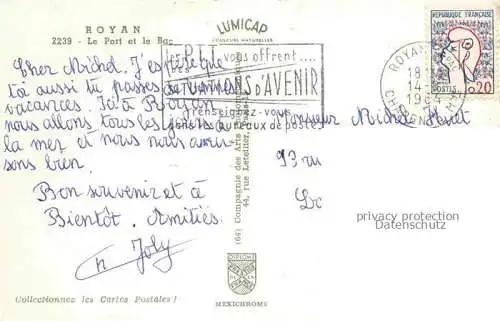 ROYAN
2239 - Le Port et le Bac
LUMICAP
COULEURS NATURELLES
RÉPUBLIQUE FRANÇAISE
POSTES 0,20
ROYAN
18
14-
1964
LES PTT vous offrent
DES SITUATIONS D'AVENIR
renseignez-vous
dans les bureaux de postes
Cher Michel. J'espère que
toi aussi tu passes de bonnes
vacances. Ici à Royan
nous allons tous les jours à
la mer et nous nous amu
sons bien.
Bon souvenir et à
Bientôt. Amitiés.
Joly
Monsieur Michel
93 rue
privacy protection
Datenschutz
(64) Compagnie des Arts
44, rue Letellier,
DIPLOME
MEXICHROME
Collectionnez les Cartes Postales !